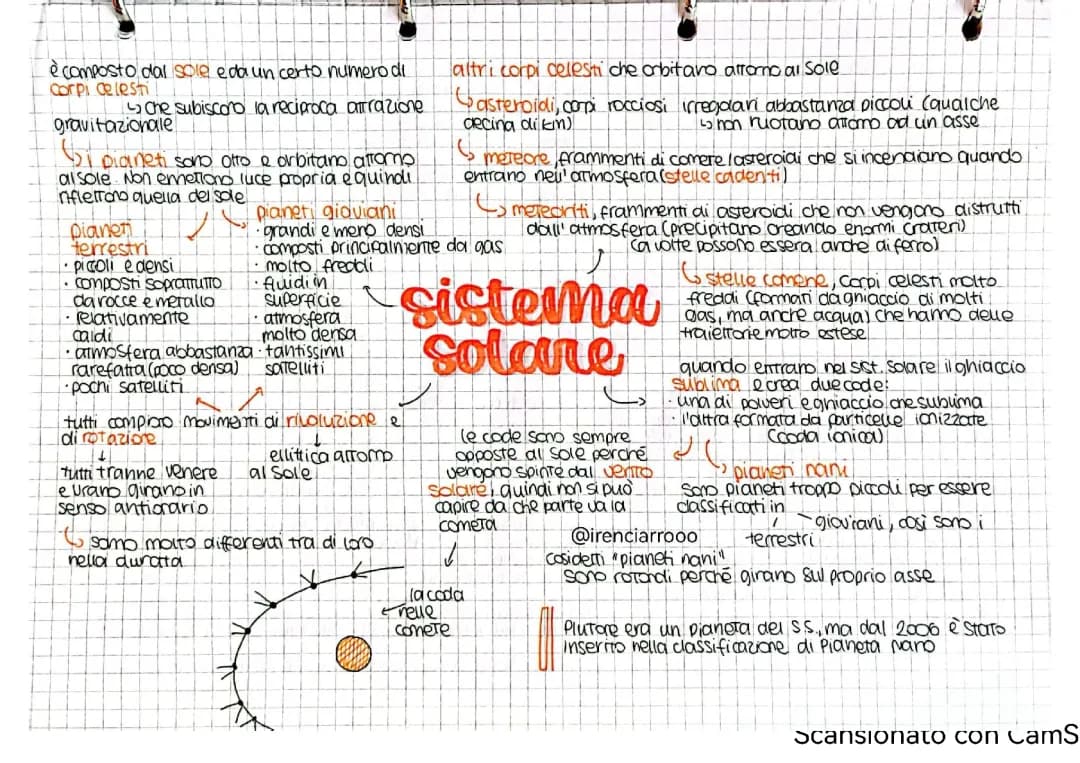 è composto dal sole e da un certo numero di
corpi celesti
↳ che subiscono la reciproca attrazione
gravitazionale
↳ i pianeti sono otto e orbitano attorno
al sole. Non emettono luce propria e quindi
riflettono quella del sole
pianeti
terrestri
· piccoli e densi
· composti soprattutto
da rocce e metallo
· relativamente
caldi
· atmosfera abbastanza
rarefatta (poco densa)
· pochi satelliti
pianeti gioviani
· grandi e meno densi
· composti principalmente da gas
· molto freddi
· fluidi in
superficie
· atmosfera
molto densa
· tantissimi
satelliti
tutti compiono movimenti di rivoluzione e
di rotazione
ellittica attorno
al sole
tutti tranne venere
e urano girano in
senso antiorario
↳ sono molto differenti tra di loro
nella durata
sistema
solare
altri corpi celesti che orbitano attorno al sole
↳ asteroidi, corpi rocciosi irregolari abbastanza piccoli (qualche
decina di km)
↳ non ruotano attorno ad un asse
↳ meteore, frammenti di comete/asteroidi che si incendiano quando
entrano nell'atmosfera (stelle cadenti)
↳ meteoriti, frammenti di asteroidi che non vengono distrutti
dall'atmosfera (precipitano creando enormi crateri)
(a volte possono essera anche di ferro)
↳ stelle comene, corpi celesti molto
freddi (formati da ghiaccio di molti
gas, ma anche acqua) che hanno delle
traiettorie molto estese
quando entrano nel sist. solare il ghiaccio
sublima e crea due code:
· una di polveri e ghiaccio che sublima
· l'altra formata da particelle ionizzate
(coda ionica)
le code sono sempre
opposte al sole perché
vengono spinte dal vento
solare, quindi non si può
capire da che parte va la
cometa
la coda
nelle
comete
↳ pianeti nani
sono pianeti troppo piccoli per essere
classificati in
gioviani, così sono i
terrestri
@irenciarrooo
cosidetti "pianeti nani"
sono rotondi perché girano sul proprio asse
Plutone era un pianeta del S.S., ma dal 2006 è stato
inserito nella classificazione di Pianeta nano
Scansionato con CamS